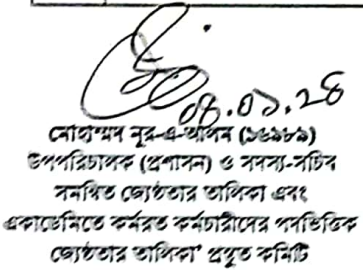 ০৪.০১.২৪
মোহাম্মদ নূর-এ-আলম (১৬৯৮৯)
উপপরিচালক (প্রশাসন) ও সদস্য-সচিব
সমন্বিত জ্যেষ্ঠতার তালিকা এবং
একাডেমিতে কর্মরত কর্মচারীদের পদভিত্তিক
জ্যেষ্ঠতার তালিকা’ প্রস্তুত কমিটি